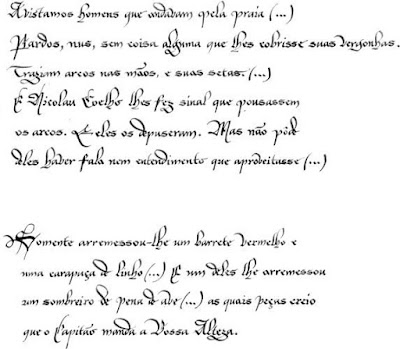 Avistamos homens que andavam pela praia (...)
Pardos, nus, sem coisa alguma que lhes cobrisse suas vergonhas.
Traziam arcos nas mãos, e suas setas. (...)
E Nicolau Coelho lhes fez sinal que pousassem
os arcos. E eles os depuseram. Mas não pôde
deles haver fala nem entendimento que aproveitasse (...)
Somente arremessou-lhe um barrete vermelho e
uma carapuça de linho (...) E um deles lhe arremessou
um sombreiro de pena de ave (...) as quais peças creio
que o Capitão manda a Vossa Alteza.